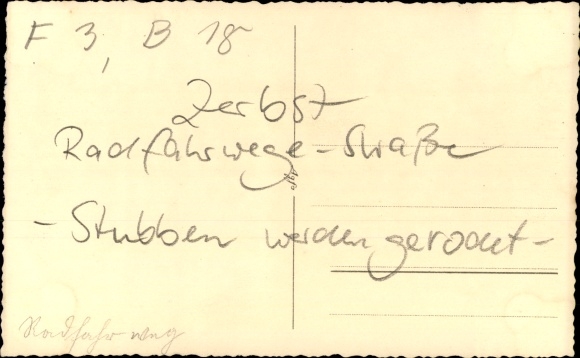 F 3, B 18
Zerbst
Radfahrwege-Straße
Agfa
- Stubben werden gerodet -
Radfahrweg